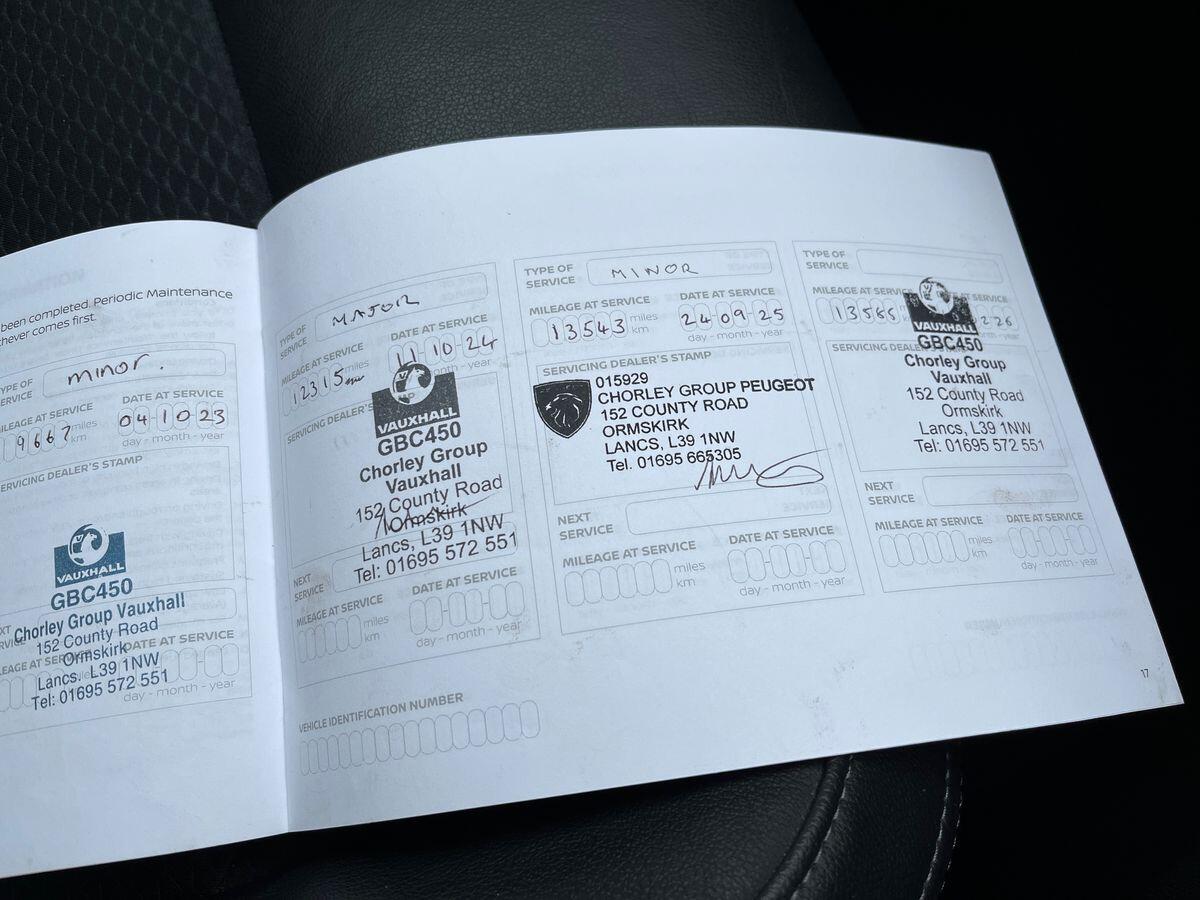 been completed. Periodic Maintenance
chever comes first.
TYPE OF
SERVICE
minor.
MILEAGE AT SERVICE
9667 miles
km
DATE AT SERVICE
04 10 23
day - month - year
SERVICING DEALER'S STAMP
VAUXHALL
GBC450
Chorley Group Vauxhall
152 County Road
Ormskirk
Lancs. L39 1NW
Tel: 01695 572 551
DATE AT SERVICE
day - month - year
TYPE OF
SERVICE
MAJOR
MILEAGE AT SERVICE
12315 miles
DATE AT SERVICE
11-10-24
SERVICING DEALER'S
VAUXHALL
GBC450
Chorley Group
Vauxhall
152 County Road
Ormskirk
Lancs, L39 1NW
Tel: 01695 572 551
NEXT
SERVICE
MILEAGE AT SERVICE
miles
km
DATE AT SERVICE
day - month - year
VEHICLE IDENTIFICATION NUMBER
TYPE OF
SERVICE
MINOR
MILEAGE AT SERVICE
13543 miles
km
DATE AT SERVICE
24-09-25
day - month - year
SERVICING DEALER'S STAMP
015929
CHORLEY GROUP PEUGEOT
152 COUNTY ROAD
ORMSKIRK
LANCS, L39 1NW
Tel. 01695 665305
NEXT
SERVICE
MILEAGE AT SERVICE
miles
km
DATE AT SERVICE
day - month - year
TYPE OF
SERVICE
MILEAGE AT SERVICE
13565
26
SERVICING DEALER'S
VAUXHALL
GBC450
Chorley Group
Vauxhall
152 County Road
Ormskirk
Lancs, L39 1NW
Tel: 01695 572 551
NEXT
SERVICE
MILEAGE AT SERVICE
miles
km
DATE AT SERVICE
day - month - year
17